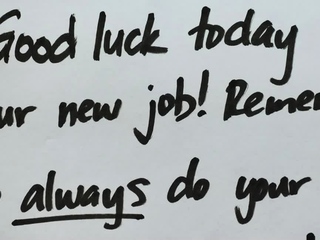 Good luck today
new job!
always do your